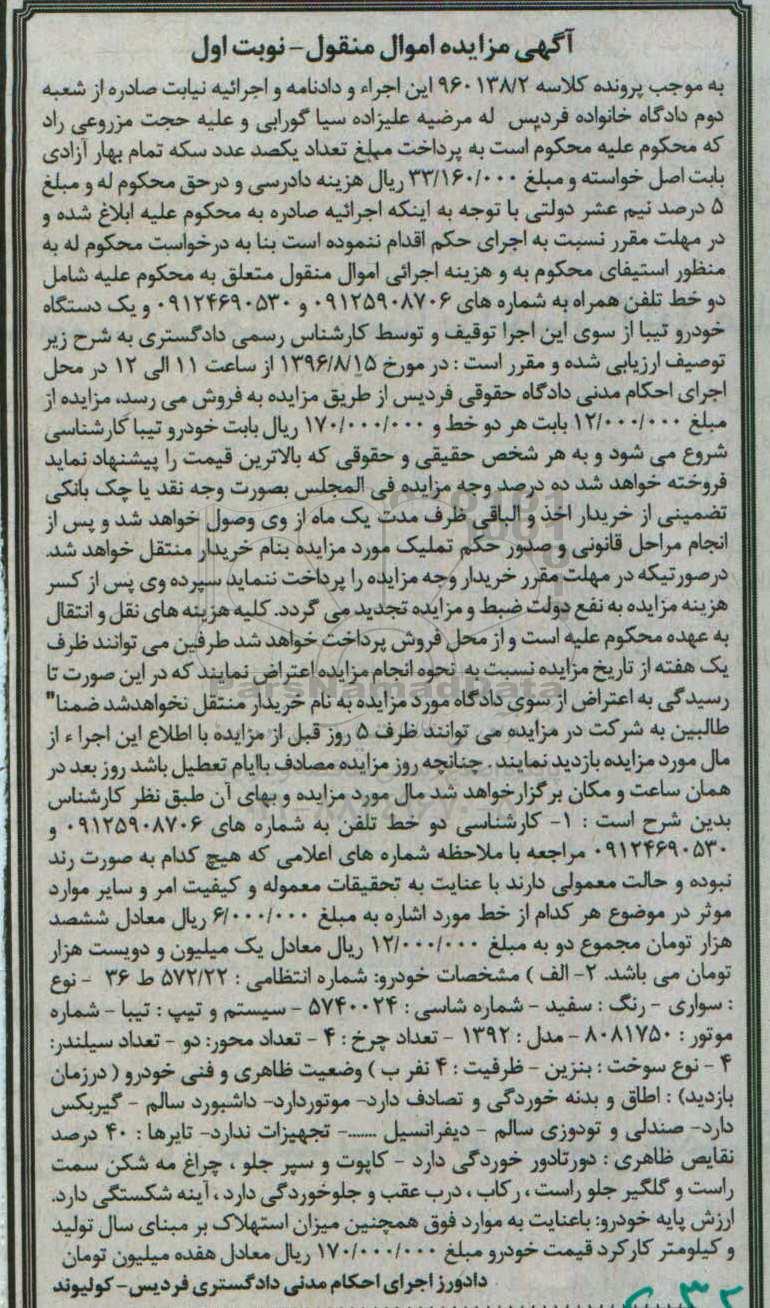 آگهی مزایده اموال منقول- نوبت اول
به موجب پرونده کلاسه ۹۶۰۱۳۸/۲ این اجراء و دادنامه و اجرائیه نیابت صادره از شعبه
دوم دادگاه خانواده فردیس له مرضیه علیزاده سیا گورابی و علیه حجت مزروعی راد
که محکوم علیه محکوم است به پرداخت مبلغ تعداد یکصد عدد سکه تمام بهار آزادی
بابت اصل خواسته و مبلغ ۳۳/۱۶۰/۰۰۰ ریال هزینه دادرسی و درحق محکوم له و مبلغ
۵ درصد نیم عشر دولتی با توجه به اینکه اجرائیه صادره به محکوم علیه ابلاغ شده و
در مهلت مقرر نسبت به اجرای حکم اقدام ننموده است بنا به درخواست محکوم له به
منظور استیفای محکوم به و هزینه اجرائی اموال منقول متعلق به محکوم علیه شامل
دو خط تلفن همراه به شماره های ۰۹۱۲۵۹۰۸۷۰۶ و ۰۹۱۲۴۶۹۰۵۳۰ و یک دستگاه
خودرو تیبا از سوی این اجرا توقیف و توسط کارشناس رسمی دادگستری به شرح زیر
توصیف ارزیابی شده و مقرر است : در مورخ ۱۳۹۶/۸/۱۵ از ساعت ۱۱ الی ۱۲ در محل
اجرای احکام مدنی دادگاه حقوقی فردیس از طریق مزایده به فروش می رسد، مزایده از
مبلغ ۱۲/۰۰۰/۰۰۰ بابت هر دو خط و ۱۷۰/۰۰۰/۰۰۰ ریال بابت خودرو تیبا کارشناسی
شروع می شود و به هر شخص حقیقی و حقوقی که بالاترین قیمت را پیشنهاد نماید
فروخته خواهد شد ده درصد وجه مزایده فی المجلس بصورت وجه نقد یا چک بانکی
تضمینی از خریدار اخذ و الباقی ظرف مدت یک ماه از وی وصول خواهد شد و پس از
انجام مراحل قانونی و صدور حکم تملیک مورد مزایده بنام خریدار منتقل خواهد شد.
درصورتیکه در مهلت مقرر خریدار وجه مزایده را پرداخت ننماید سپرده وی پس از کسر
هزینه مزایده به نفع دولت ضبط و مزایده تجدید می گردد. کلیه هزینه های نقل و انتقال
به عهده محکوم علیه است و از محل فروش پرداخت خواهد شد طرفین می توانند ظرف
یک هفته از تاریخ مزایده نسبت به نحوه انجام مزایده اعتراض نمایند که در این صورت تا
رسیدگی به اعتراض از سوی دادگاه مورد مزایده به نام خریدار منتقل نخواهدشد ضمنا"
طالبین به شرکت در مزایده می توانند ظرف ۵ روز قبل از مزایده با اطلاع این اجراء از
مال مورد مزایده بازدید نمایند . چنانچه روز مزایده مصادف باایام تعطیل باشد روز بعد در
همان ساعت و مکان برگزارخواهد شد مال مورد مزایده و بهای آن طبق نظر کارشناس
بدین شرح است : ۱- کارشناسی دو خط تلفن به شماره های ۰۹۱۲۵۹۰۸۷۰۶ و
۰۹۱۲۴۶۹۰۵۳۰ مراجعه با ملاحظه شماره های اعلامی که هیچ کدام به صورت رند
نبوده و حالت معمولی دارند با عنایت به تحقیقات معموله و کیفیت امر و سایر موارد
موثر در موضوع هر کدام از خط مورد اشاره به مبلغ ۶/۰۰۰/۰۰۰ ریال معادل ششصد
هزار تومان مجموع دو به مبلغ ۱۲/۰۰۰/۰۰۰ ریال معادل یک میلیون و دویست هزار
تومان می باشد. ۲- الف ) مشخصات خودرو: شماره انتظامی : ۵۷۲/۲۲ ط ۳۶ - نوع
: سواری - رنگ : سفید - شماره شاسی : ۵۷۴۰۰۲۴ - سیستم و تیپ : تیبا - شماره
موتور : ۸۰۸۱۷۵۰ - مدل : ۱۳۹۲ - تعداد چرخ : ۴ - تعداد محور: دو - تعداد سیلندر:
۴ - نوع سوخت : بنزین - ظرفیت : ۴ نفر ب ) وضعیت ظاهری و فنی خودرو ( درزمان
بازدید) : اطاق و بدنه خوردگی و تصادف دارد- موتوردارد- داشبورد سالم - گیربکس
دارد- صندلی و تودوزی سالم - دیفرانسیل ......- تجهیزات ندارد- تایرها : ۴۰ درصد
نقایص ظاهری : دورتادور خوردگی دارد - کاپوت و سپر جلو ، چراغ مه شکن سمت
راست و گلگیر جلو راست ، رکاب ، درب عقب و جلوخوردگی دارد ، آینه شکستگی دارد.
ارزش پایه خودرو: باعنایت به موارد فوق همچنین میزان استهلاک بر مبنای سال تولید
و کیلومتر کارکرد قیمت خودرو مبلغ ۱۷۰/۰۰۰/۰۰۰ ریال معادل هفده میلیون تومان
دادورز اجرای احکام مدنی دادگستری فردیس- کولیوند
ParsNamadData